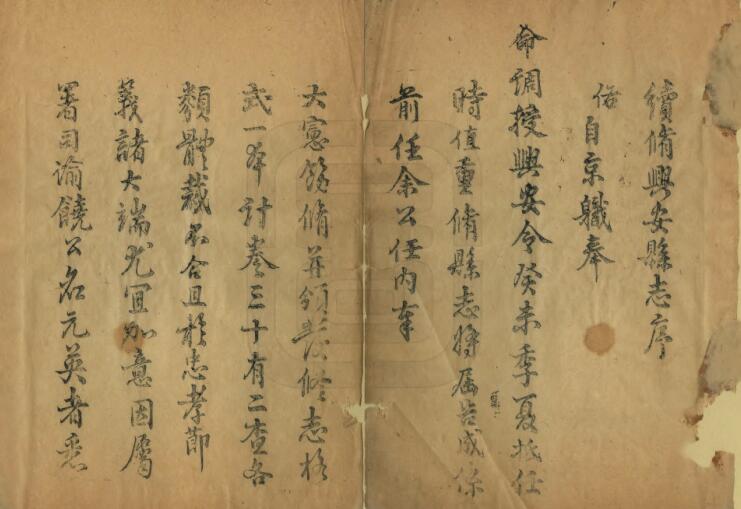 續脩興安縣志序
偹自京職奉
命調授興安令癸未季夏抵任
時值重脩縣志將屆告成係
前任余公任內奉
大憲飭脩并領發修志格
式一本計卷三十有二查各
類體裁不合且於忠孝節
義諸大端尤宜加意因屬
署司諭饒公名元英者悉